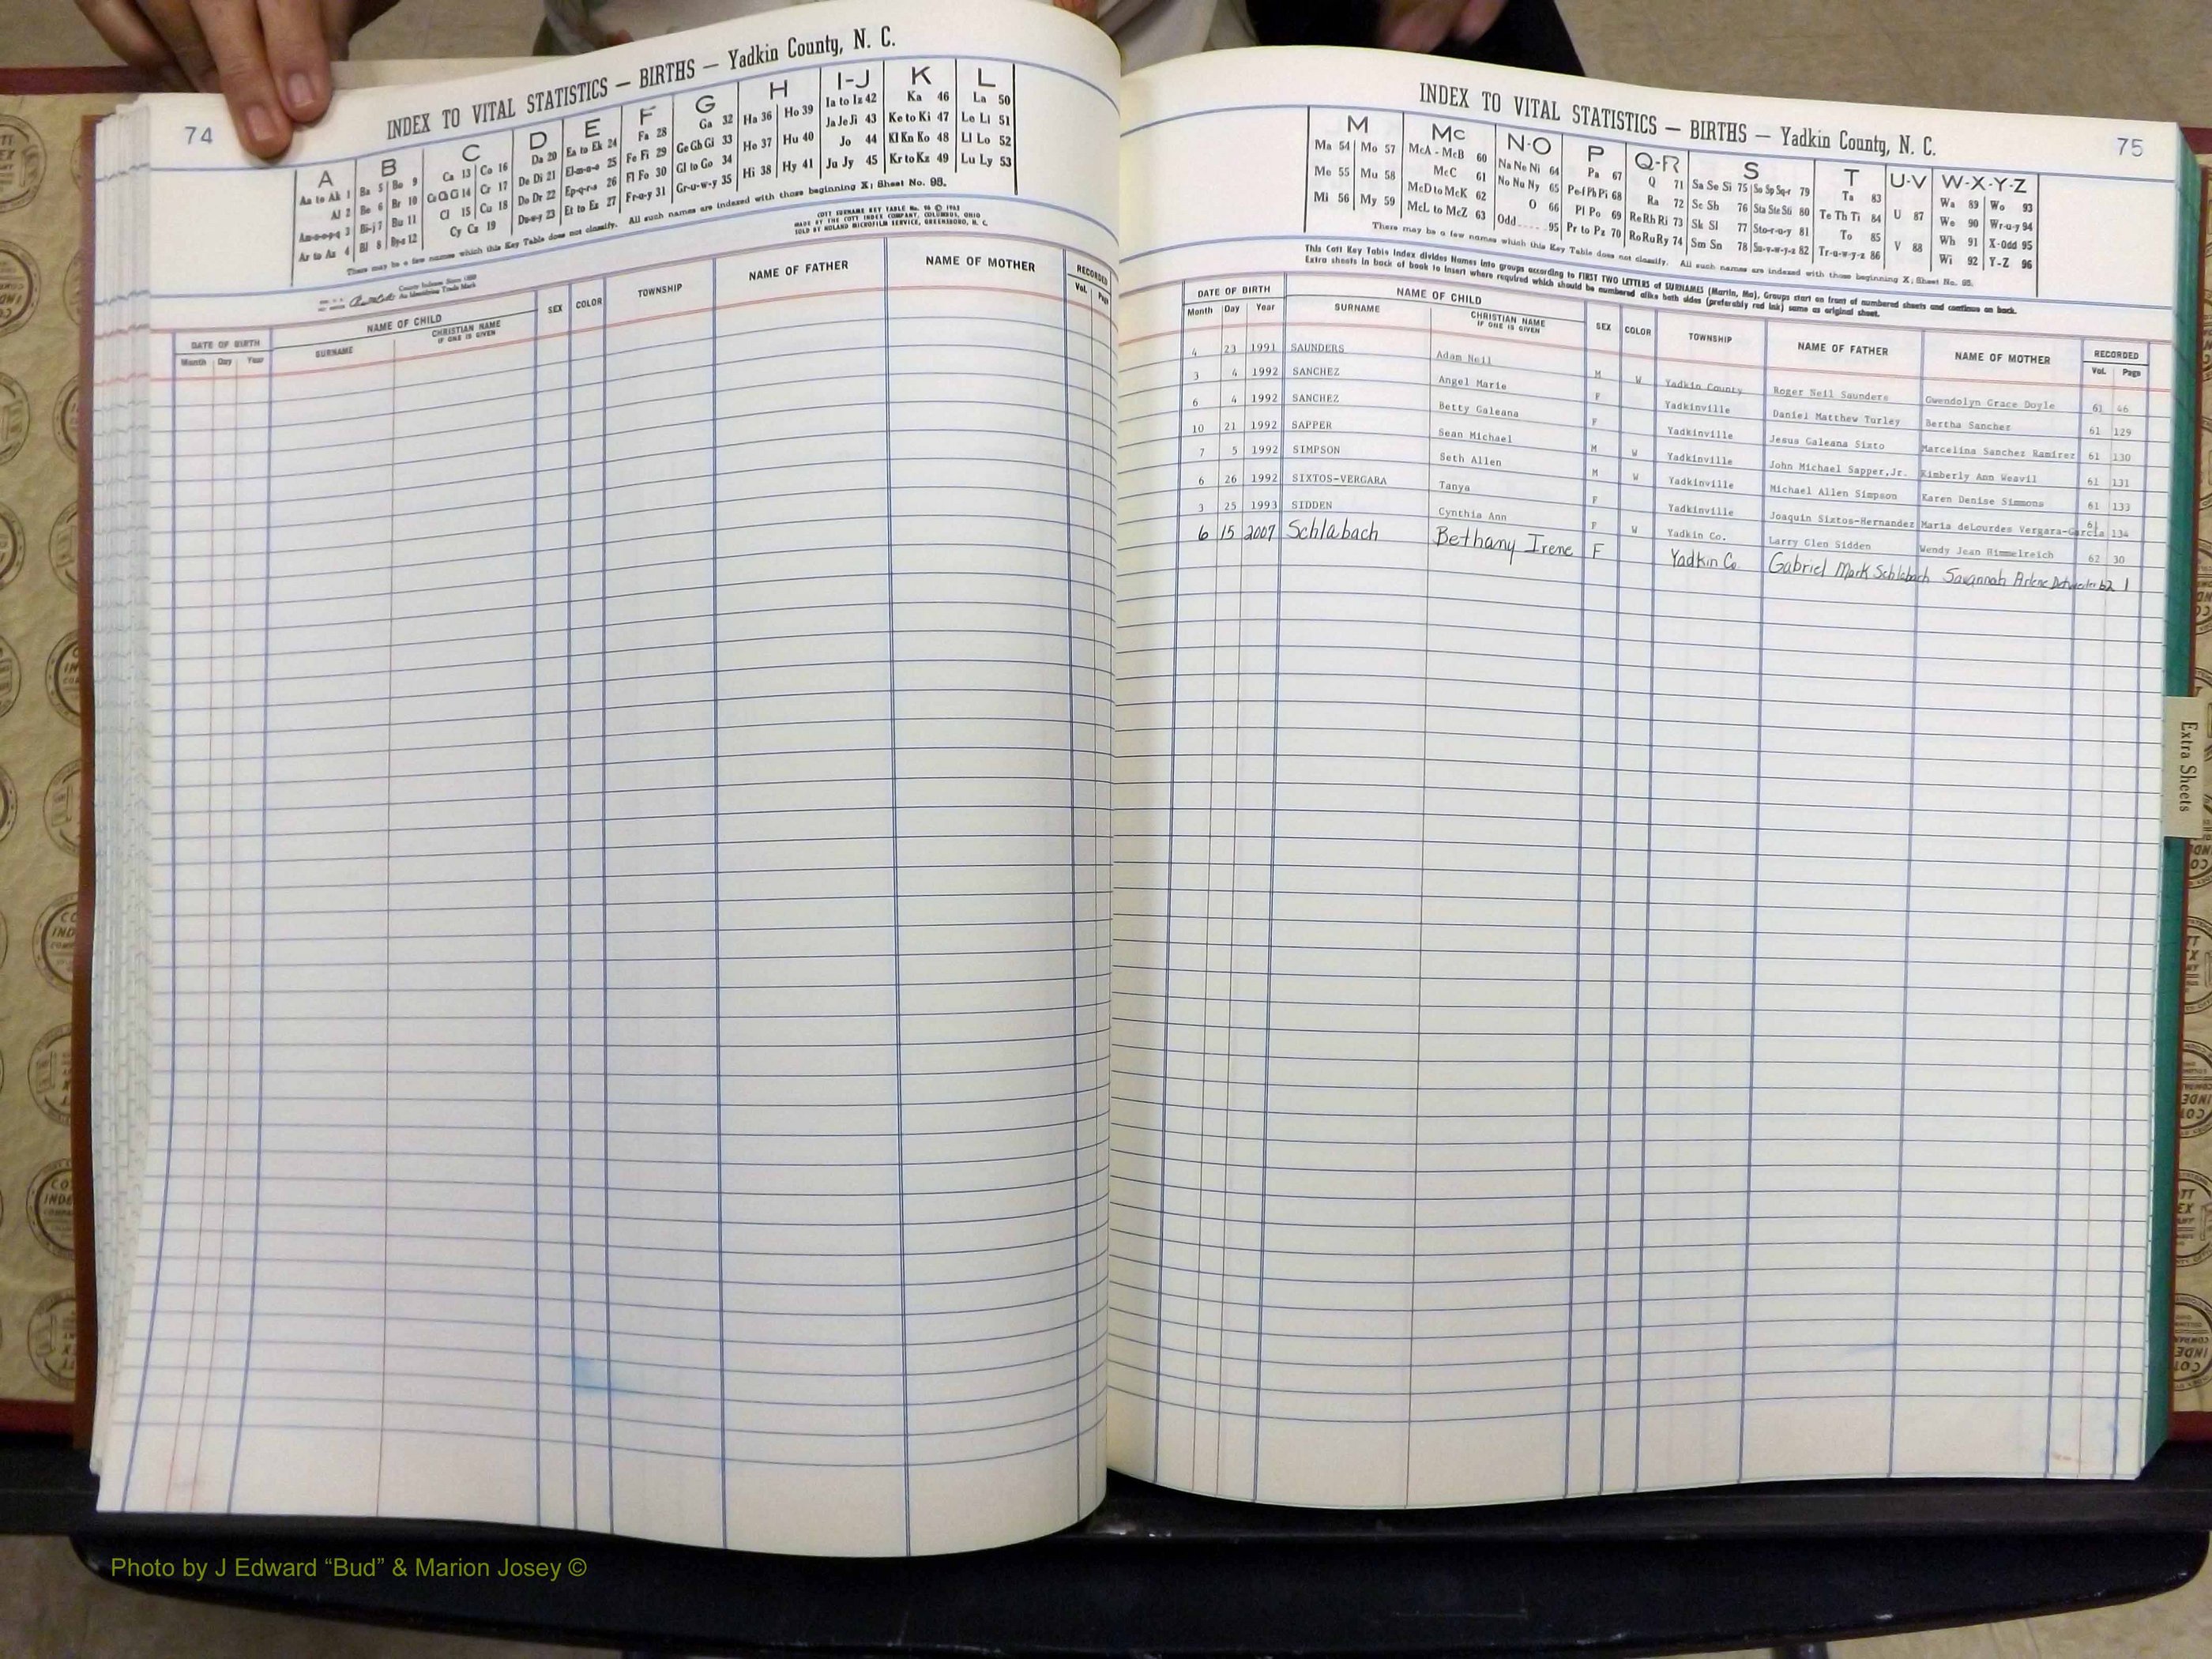 74
INDEX TO VITAL STATISTICS — BIRTHS — Yadkin County, N. C.
A B C D E F G H I-J K L
Aa to Ak 1 Ba 5 Be 9 Ca 13 Co 16 Da 20 Ea to Ek 24 Fa 28 Ga 32 Ha 36 Ho 39 Ia to Iz 42 Ka 46 La 50
Al 2 Be 6 Br 10 Ce Ch Ci 14 Cr 17 De Di 21 El-m-n-o 25 Fe Fi 29 Ge Gh Gi 33 He 37 Hu 40 Ja Je Ji 43 Ke to Ki 47 Le Li 51
Am-n-o-p-q 3 Bi-j 7 Bu 11 Cl 15 Cu 18 Do Dr 22 Ep-q-r-s 26 Fl Fo 30 Gl to Go 34 Hi 38 Hy 41 Jo 44 Kl Kn Ko 48 Ll Lo 52
Ar to Az 4 Bl 8 By-z 12 Cy Cz 19 Du-w-y 23 Et to Ez 27 Fr-u-y 31 Gr-u-w-y 35 Ju Jy 45 Kr to Kz 49 Lu Ly 53
There may be a few names which this Key Table does not classify. All such names are indexed with those beginning X; Sheet No. 95.
COTT SURNAME KEY TABLE No. 96 © 1963
MADE BY THE COTT INDEX COMPANY, COLUMBUS, OHIO
SOLD BY ROLAND MICROFILM SERVICE, GREENSBORO, N. C.
County Indexes Since 1888
An Identifying Trade Mark
DATE OF BIRTH NAME OF CHILD SEX COLOR TOWNSHIP NAME OF FATHER NAME OF MOTHER RECORDED
Month Day Year SURNAME CHRISTIAN NAME IF ONE IS GIVEN Vol. Page
75
INDEX TO VITAL STATISTICS — BIRTHS — Yadkin County, N. C.
M Mc N-O P Q-R S T U-V W-X-Y-Z
Ma 54 Mo 57 McA - McB 60 Na Ne Ni 64 Pa 67 Q 71 Sa Se Si 75 So Sp Sq-r 79 Ta 83 U 87 Wa 89 Wo 93
Me 55 Mu 58 McC 61 No Nu Ny 65 Pe-f Ph Pi 68 Ra 72 Sc Sh 76 Sta Ste Sti 80 Te Th Ti 84 V 88 We 90 Wr-u-y 94
Mi 56 My 59 McD to McK 62 O 66 Pl Po 69 Re Rh Ri 73 Sk Sl 77 Sto-r-u-y 81 To 85 Wh 91 X-Odd 95
McL to McZ 63 Odd 95 Pr to Pz 70 Ro Ru Ry 74 Sm Sn 78 Su-v-w-y-z 82 Tr-u-w-y-z 86 Wi 92 Y-Z 96
There may be a few names which this Key Table does not classify. All such names are indexed with those beginning X; Sheet No. 95.
This Cott Key Table Index divides Names into groups according to FIRST TWO LETTERS of SURNAMES (Martin, Ma). Groups start on front of numbered sheets and continue on back.
Extra sheets in back of book to insert where required which should be numbered alike both sides (preferably red ink) same as original sheet.
DATE OF BIRTH NAME OF CHILD SEX COLOR TOWNSHIP NAME OF FATHER NAME OF MOTHER RECORDED
Month Day Year SURNAME CHRISTIAN NAME IF ONE IS GIVEN Vol. Page
4 23 1991 SAUNDERS Adam Neil M W Yadkin County Roger Neil Saunders Gwendolyn Grace Doyle 61 46
3 4 1992 SANCHEZ Angel Marie F Yadkinville Daniel Matthew Turley Bertha Sanchez 61 129
6 4 1992 SANCHEZ Betty Galeana F Yadkinville Jesus Galeana Sixto Marcelina Sanchez Ramirez 61 130
10 21 1992 SAPPER Sean Michael M W Yadkinville John Michael Sapper,Jr. Kimberly Ann Weavil 61 131
7 5 1992 SIMPSON Seth Allen M W Yadkinville Michael Allen Simpson Karen Denise Simmons 61 133
6 26 1992 SIXTOS-VERGARA Tanya F Yadkinville Joaquin Sixtos-Hernandez Maria deLourdes Vergara-Garcia 61 134
3 25 1993 SIDDEN Cynthia Ann F W Yadkin Co. Larry Glen Sidden Wendy Jean Himmelreich 62 30
6 15 2007 Schlabach Bethany Irene F Yadkin Co. Gabriel Mark Schlabach Savannah Arlene Detweiler 62 1
Extra Sheets
Photo by J Edward “Bud” & Marion Josey ©